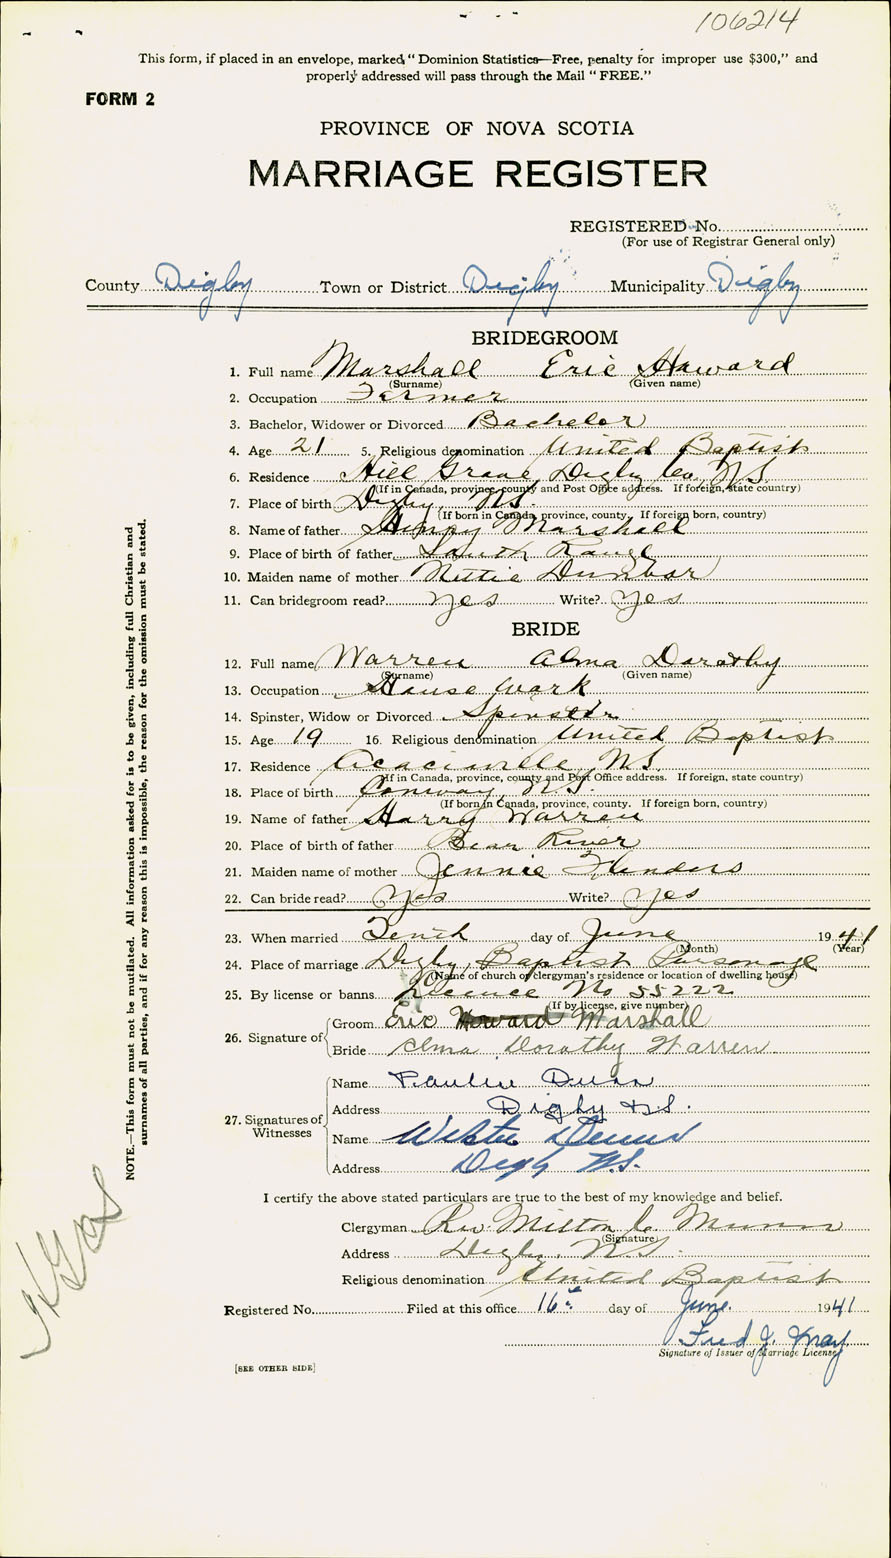 106214
This form, if placed in an envelope, marked, " Dominion Statistics—Free, penalty for improper use $300," and
properly addressed will pass through the Mail " FREE."
FORM 2
PROVINCE OF NOVA SCOTIA
MARRIAGE REGISTER
REGISTERED No.
(For use of Registrar General only)
County Digby Town or District Digby Municipality Digby
BRIDEGROOM
1. Full name Marshall Eric Howard
(Surname) (Given name)
2. Occupation Farmer
3. Bachelor, Widower or Divorced Bachelor
4. Age 21 5. Religious denomination United Baptist
6. Residence Hill Grove Digby Co. N.S.
(If in Canada, province, county and Post Office address. If foreign, state country)
7. Place of birth Digby, N.S.
(If born in Canada, province, county. If foreign born, country)
8. Name of father Henry Marshall
9. Place of birth of father South Range
10. Maiden name of mother Nettie Dunbar
11. Can bridegroom read? Yes Write? Yes
BRIDE
12. Full name Warren Alma Dorothy
(Surname) (Given name)
13. Occupation House Work
14. Spinster, Widow or Divorced Spinster
15. Age 19 16. Religious denomination United Baptist
17. Residence Acaciaville, N.S.
(If in Canada, province, county and Post Office address. If foreign, state country)
18. Place of birth Conway, N.S.
(If born in Canada, province, county. If foreign born, country)
19. Name of father Harry Warren
20. Place of birth of father Bear River
21. Maiden name of mother Jennie
22. Can bride read? Yes Write? Yes
23. When married Tenth day of June 1941
(Month) (Year)
24. Place of marriage Digby, Baptist Parsonage
(Name of church of clergyman's residence or location of dwelling house)
25. By license or banns Licence No 55222
(If by license, give number)
26. Signature of
Groom Eric Howard Marshall
Bride Alma Dorothy Warren
27. Signatures of Witnesses
Name Pauline Dunn
Address Digby N.S.
Name
Address Digby N.S.
I certify the above stated particulars are true to the best of my knowledge and belief.
Clergyman Rev. Milton C. Munro
(Signature)
Address Digby, N.S.
Religious denomination United Baptist
Registered No. Filed at this office 16 day of June 1941
Fred J.
Signature of Issuer of Marriage License
[SEE OTHER SIDE]
NOTE.—This form must not be mutilated. All information asked for is to be given, including full Christian and
surnames of all parties, and if for any reason this is impossible, the reason for the omission must be stated.